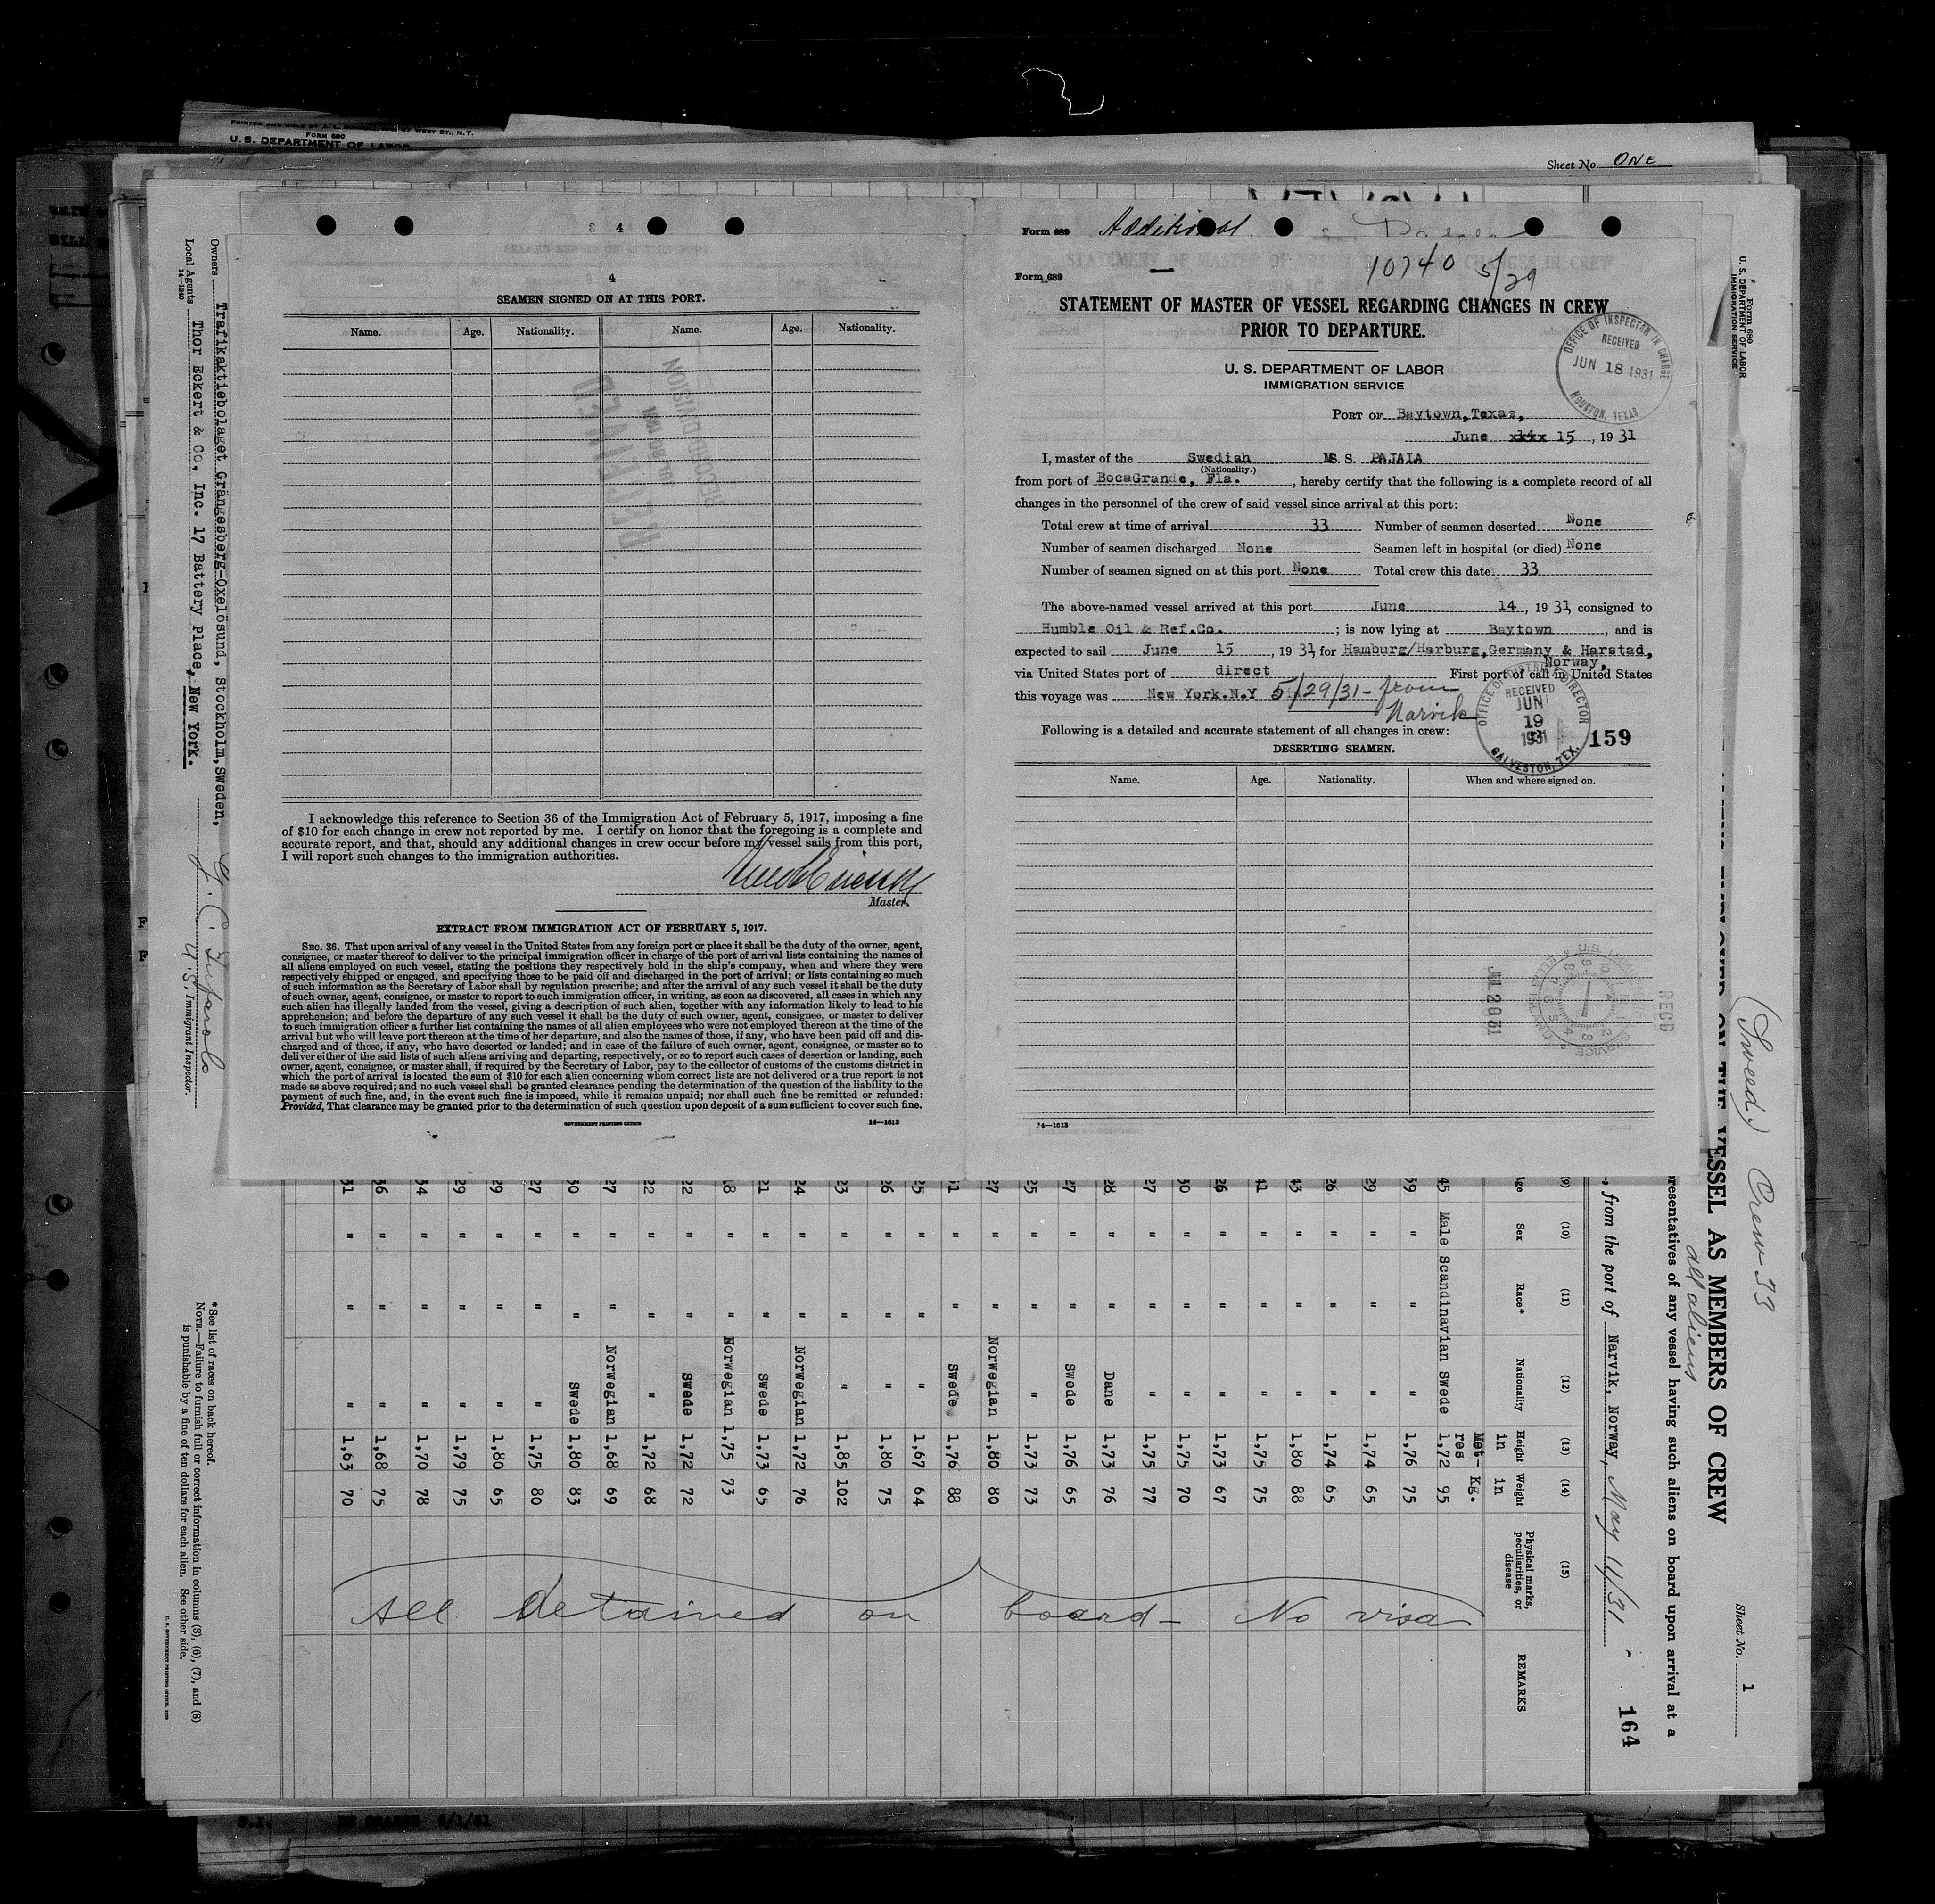 PRINTED AND SOLD BY
WEST ST., N.Y.
FORM 680
U. S. DEPARTMENT OF LABOR
Sheet No. ONE
4
4
SEAMEN SIGNED ON AT THIS PORT.
Name. Age. Nationality. Name. Age. Nationality.
RECORD DIVISION
I acknowledge this reference to Section 36 of the Immigration Act of February 5, 1917, imposing a fine
of $10 for each change in crew not reported by me. I certify on honor that the foregoing is a complete and
accurate report, and that, should any additional changes in crew occur before my vessel sails from this port,
I will report such changes to the immigration authorities.
Master.
EXTRACT FROM IMMIGRATION ACT OF FEBRUARY 5, 1917.
SEC. 36. That upon arrival of any vessel in the United States from any foreign port or place it shall be the duty of the owner, agent,
consignee, or master thereof to deliver to the principal immigration officer in charge of the port of arrival lists containing the names of
all aliens employed on such vessel, stating the positions they respectively hold in the ship's company, when and where they were
respectively shipped or engaged, and specifying those to be paid off and discharged in the port of arrival; or lists containing so much
of such information as the Secretary of Labor shall by regulation prescribe; and after the arrival of any such vessel it shall be the duty
of such owner, agent, consignee, or master to report to such immigration officer, in writing, as soon as discovered, all cases in which any
such alien has illegally landed from the vessel, giving a description of such alien, together with any information likely to lead to his
apprehension; and before the departure of any such vessel it shall be the duty of such owner, agent, consignee, or master to deliver
to such immigration officer a further list containing the names of all alien employees who were not employed thereon at the time of the
arrival but who will leave port thereon at the time of her departure, and also the names of those, if any, who have been paid off and dis-
charged and of those, if any, who have deserted or landed; and in case of the failure of such owner, agent, consignee, or master so to
deliver either of the said lists of such aliens arriving and departing, respectively, or so to report such cases of desertion or landing, such
owner, agent, consignee, or master shall, if required by the Secretary of Labor, pay to the collector of customs of the customs district in
which the port of arrival is located the sum of $10 for each alien concerning whom correct lists are not delivered or a true report is not
made as above required; and no such vessel shall be granted clearance pending the determination of the question of the liability to the
payment of such fine, and, in the event such fine is imposed, while it remains unpaid; nor shall such fine be remitted or refunded:
Provided, That clearance may be granted prior to the determination of such question upon deposit of a sum sufficient to cover such fine.
GOVERNMENT PRINTING OFFICE 14—1613
Form 689 Additional
10740 5/29
Form 689
STATEMENT OF MASTER OF VESSEL REGARDING CHANGES IN CREW
PRIOR TO DEPARTURE.
U. S. DEPARTMENT OF LABOR
IMMIGRATION SERVICE
OFFICE OF INSPECTOR IN CHARGE
RECEIVED
JUN 18 1931
HOUSTON, TEXAS
PORT OF Baytown, Texas,
June x14x 15, 1931
I, master of the Swedish MS. S. PAJALA
(Nationality.)
from port of BocaGrande, Fla., hereby certify that the following is a complete record of all
changes in the personnel of the crew of said vessel since arrival at this port:
Total crew at time of arrival 33 Number of seamen deserted None
Number of seamen discharged None Seamen left in hospital (or died) None
Number of seamen signed on at this port None Total crew this date 33
The above-named vessel arrived at this port June 14, 1931, consigned to
Humble Oil & Ref.Co.; is now lying at Baytown, and is
expected to sail June 15, 1931, for Hamburg/Harburg, Germany & Harstad,
Norway,
via United States port of direct First port of call in United States
this voyage was New York.N.Y 5/29/31 - from
Narvik
Following is a detailed and accurate statement of all changes in crew:
OFFICE OF DISTRICT DIRECTOR
RECEIVED
JUN
19
1931
GALVESTON, TEX.
159
DESERTING SEAMEN.
Name. Age. Nationality. When and where signed on.
RECD
14—1613
Owners Trafikaktiebolaget Grängesberg-Oxelösund, Stockholm, Sweden,
Local Agents Thor Eckert & Co, Inc. 17 Battery Place, New York.
14—1240
U.S. Immigrant Inspector.
Form 680
U. S. DEPARTMENT OF LABOR
IMMIGRATION SERVICE
(Swed) Crew 33
Sheet No. 1
VESSEL AS MEMBERS OF CREW
all aliens
resentatives of any vessel having such aliens on board upon arrival at a
, from the port of Narvik, Norway, May 11/31
164
(9) (10) (11) (12) (13) (14) (15)
Age Sex Race* Nationality Height in Weight in Physical marks, peculiarities, or disease REMARKS
Met-res Kg.
45 Male Scandinavian Swede 1,72 95
39 " " " 1,76 75
29 " " " 1,74 65
26 " " " 1,74 65
43 " " " 1,80 88
41 " " " 1,75 75
26 " " " 1,73 67
30 " " " 1,75 70
27 " " " 1,75 77
28 " " Dane 1,73 76
27 " " Swede 1,76 65
25 " " " 1,73 73
27 " " Norwegian 1,80 80
31 " " Swede 1,76 88
25 " " " 1,67 64
26 " " " 1,80 75
23 " " " 1,85 102
24 " " Norwegian 1,72 76
21 " " Swede 1,73 65
18 " " Norwegian 1,75 73
22 " " Swede 1,72 72
22 " " " 1,72 68
27 " " Norwegian 1,68 69
30 " " Swede 1,80 83
27 " " " 1,75 80
29 " " " 1,80 65
29 " " " 1,79 75
34 " " " 1,70 78
36 " " " 1,68 75
31 " " " 1,63 70
All detained on board - No visa
* See list of races on back hereof.
NOTE.—Failure to furnish full or correct information in columns (3), (6), (7), and (8)
is punishable by a fine of ten dollars for each alien. See other side.
U. S. GOVERNMENT PRINTING OFFICE